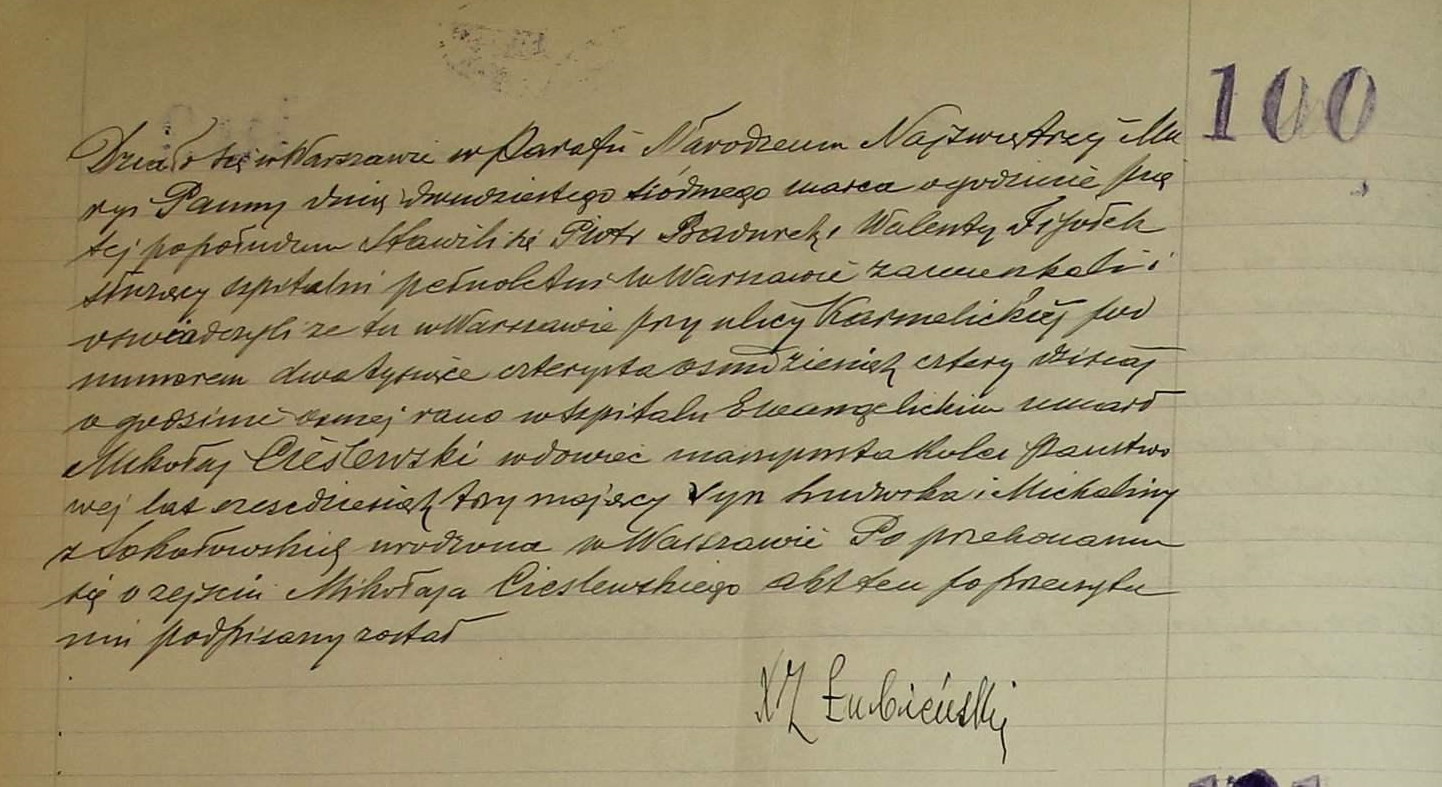 100
Działo się w Warszawie w Parafii Narodzenia Najświętrzej Ma
ryi Panny dnia dwudziestego siódmego marca o godzinie pią
tej popołudniu stawili się Piotr Badurek, Walenty Fijołek
służący szpitalni pełnoletni w Warszawie zamieszkali i
oświadczyli że tu w Warszawie przy ulicy Karmelickiej pod
numerem dwa tysiące czterysta osmdziesiąt cztery dzisiaj
o godzinie osmej rano w szpitalu Ewangelickim umarł
Mikołaj Cieślewski wdowiec maszynista kolei Państwo
wej lat sześćdziesiąt trzy mający syn Ludwika i Michaliny
z Sokołowskich urodzona w Warszawie Po przekonaniu
się o zejściu Mikołaja Cieslewskiego akt ten po przeczyta
niu podpisany został
X Z Łubieński